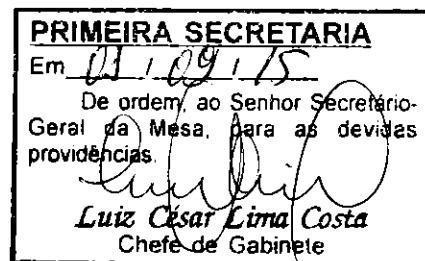 PRIMEIRA SECRETARIA
Em 03 / 09 / 15
De ordem, ao Senhor Secretário-
Geral da Mesa, para as devidas
providências.
Luiz César Lima Costa
Chefe de Gabinete